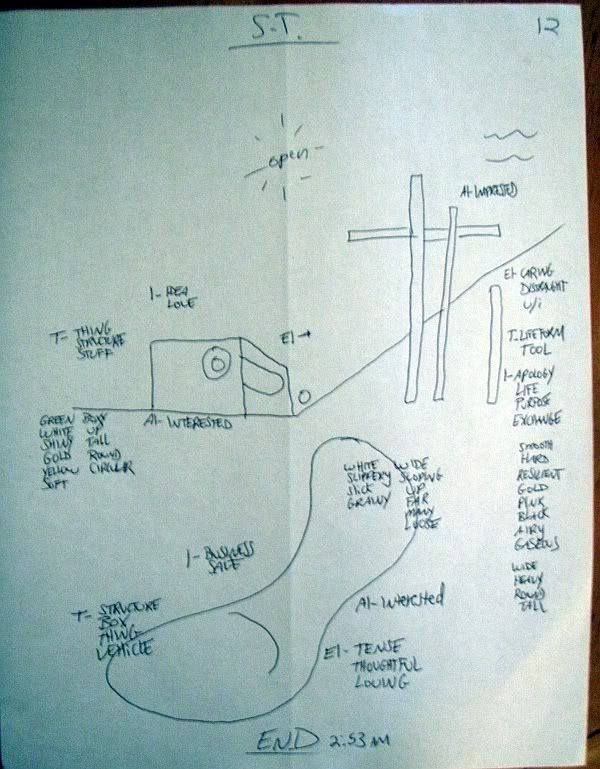 S.T.
12
open
AI-IMPRESTED
EI-CARING
DISTRAUGHT
U/i
T-LIFEFORM
TOOL
I-APOLOGY
LIFE
PURPOSE
EXCHANGE
SMOOTH
HARD
RESILIENT
GOLD
PINK
BLACK
AIRY
GASEOUS
WIDE
HEAVY
ROUND
TALL
I-IDEA
LOVE
T-THING
STRUCTURE
STUFF
EI→
AI-INTERESTED
GREEN BOXY
WHITE UP
SHINY TALL
GOLD ROUND
YELLOW CIRCULAR
SOFT
WHITE WIDE
SLIPPERY SLOPING
SLICK UP
GRAINY FAR
MANY
LOOSE
I-BUSINESS
SALE
T-STRUCTURE
BOX
THING
VEHICLE
AI-INTERESTED
EI-TENSE
THOUGHTFUL
LOVING
END 2:53 AM